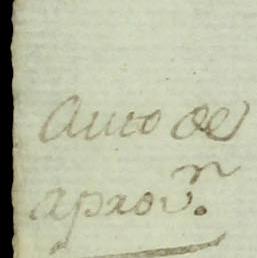 Auto de
aprov.n